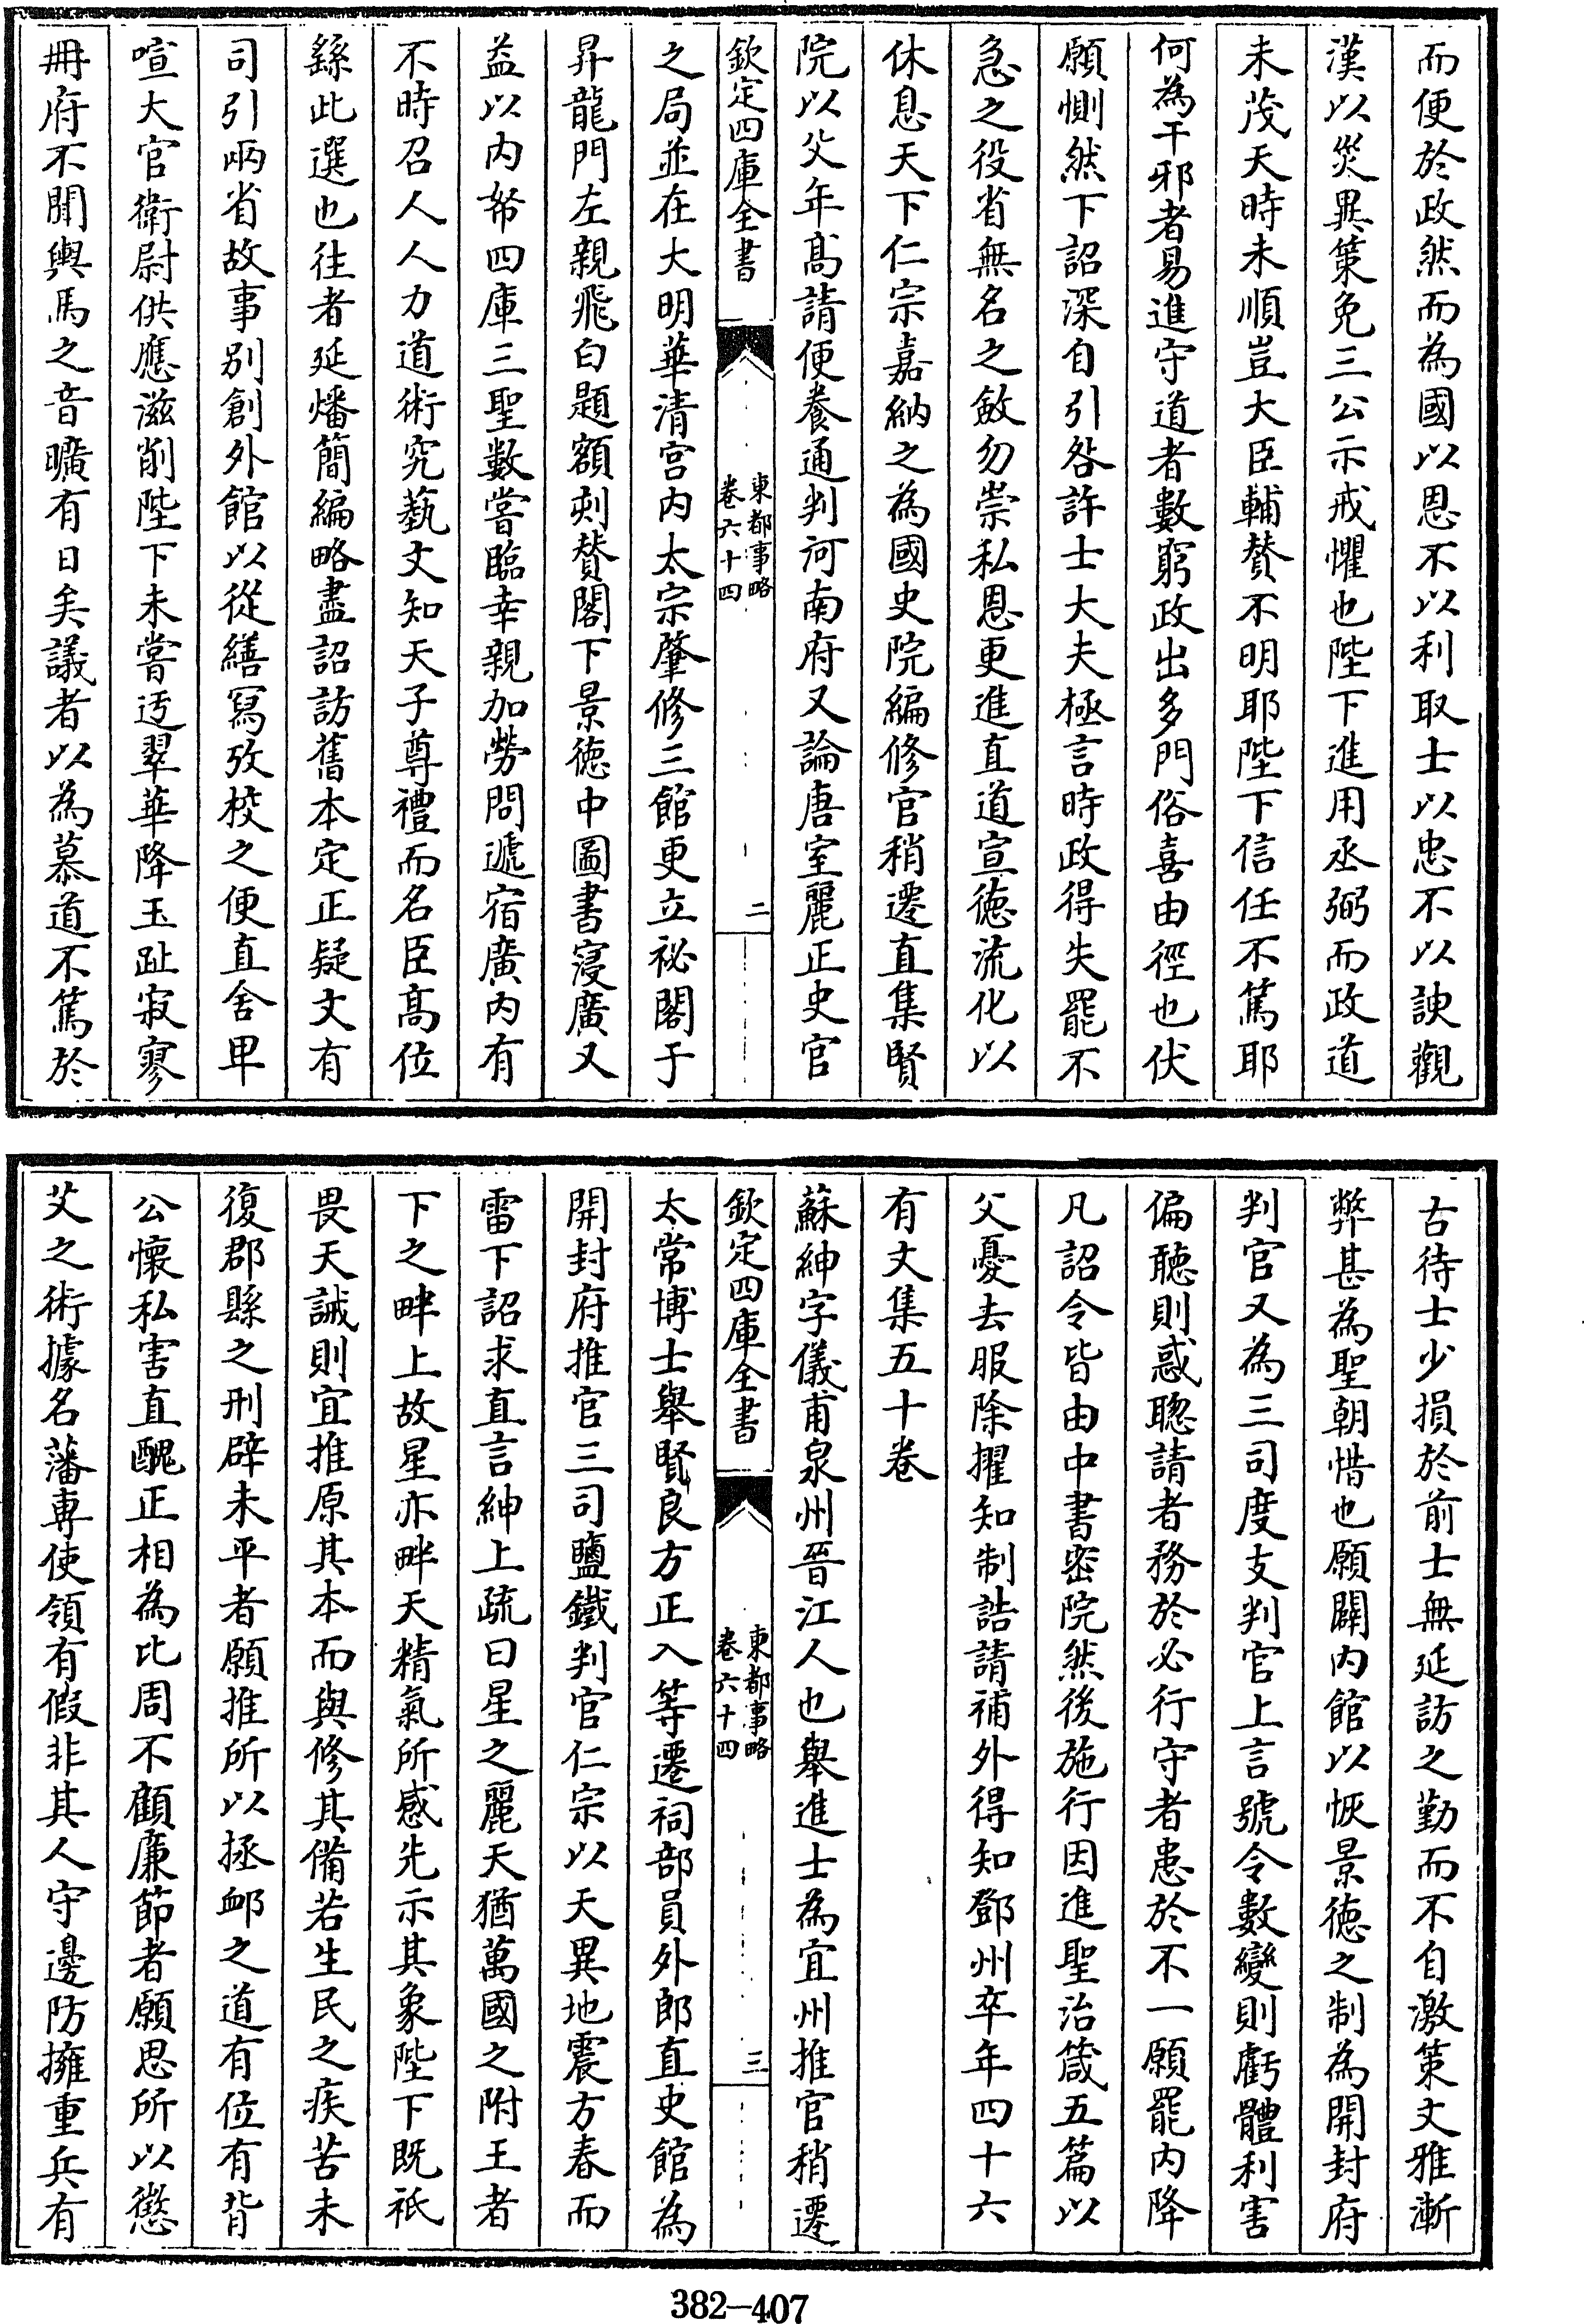 而便於政然而為國以恩不以利取士以忠不以諛觀
漢以災異策免三公示戒懼也陛下進用丞弼而政道
未茂天時未順豈大臣輔賛不明耶陛下信任不篤耶
何為干邪者易進守道者數窮政出多門俗喜由徑也伏
願惻然下詔深自引咎許士大夫極言時政得失罷不
急之役省無名之斂勿崇私恩更進直道宣徳流化以
休息天下仁宗嘉納之為國史院編修官稍遷直集賢
院以父年髙請便養通判河南府又論唐室麗正史官
欽定四庫全書
東都事略
卷六十四
二
之局並在大明華清宫内太宗肇修三館更立祕閣于
昇龍門左親飛白題額刻賛閣下景徳中圖書寖廣又
益以内帑四庫三聖數嘗臨幸親加勞問遞宿廣内有
不時召人人力道術究藝文知天子尊禮而名臣髙位
繇此選也往者延燔簡編略盡詔訪舊本定正疑文有
司引兩省故事别創外館以從繕寫攷校之便直舍卑
喧大官衛尉供應滋削陛下未嘗迂翠華降玉趾寂寥
冊府不聞輿馬之音曠有日矣議者以為慕道不篤於
古待士少損於前士無延訪之勤而不自激策文雅漸
弊甚為聖朝惜也願闢内館以恢景徳之制為開封府
判官又為三司度支判官上言號令數變則虧體利害
偏聽則惑聰請者務於必行守者患於不一願罷内降
凡詔令皆由中書密院然後施行因進聖治箴五篇以
父憂去服除擢知制誥請補外得知鄧州卒年四十六
有文集五十卷
蘇紳字儀甫泉州晉江人也舉進士為宜州推官稍遷
欽定四庫全書
東都事略
卷六十四
三
太常博士舉賢良方正入等遷祠部員外郎直史館為
開封府推官三司鹽鐵判官仁宗以天異地震方春而
雷下詔求直言紳上疏曰星之麗天猶萬國之附王者
下之畔上故星亦畔天精氣所感先示其象陛下既祇
畏天誡則宜推原其本而與修其備若生民之疾苦未
復郡縣之刑辟未平者願推所以拯卹之道有位有背
公懷私害直醜正相為比周不顧廉節者願思所以懲
艾之術據名藩専使領有假非其人守邊防擁重兵有
382-407